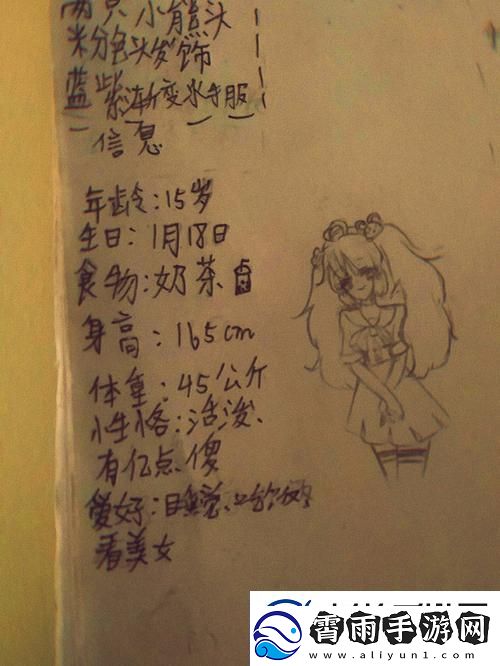 两只小熊头
粉色头发饰
蓝紫渐变水手服
信息
年龄:15岁
生日:1月18日
食物:奶茶
身高:165cm
体重:45公斤
性格:活泼、
有亿点傻
爱好:睡觉、
看美女
霄雨手游网
www.aliyun1.com